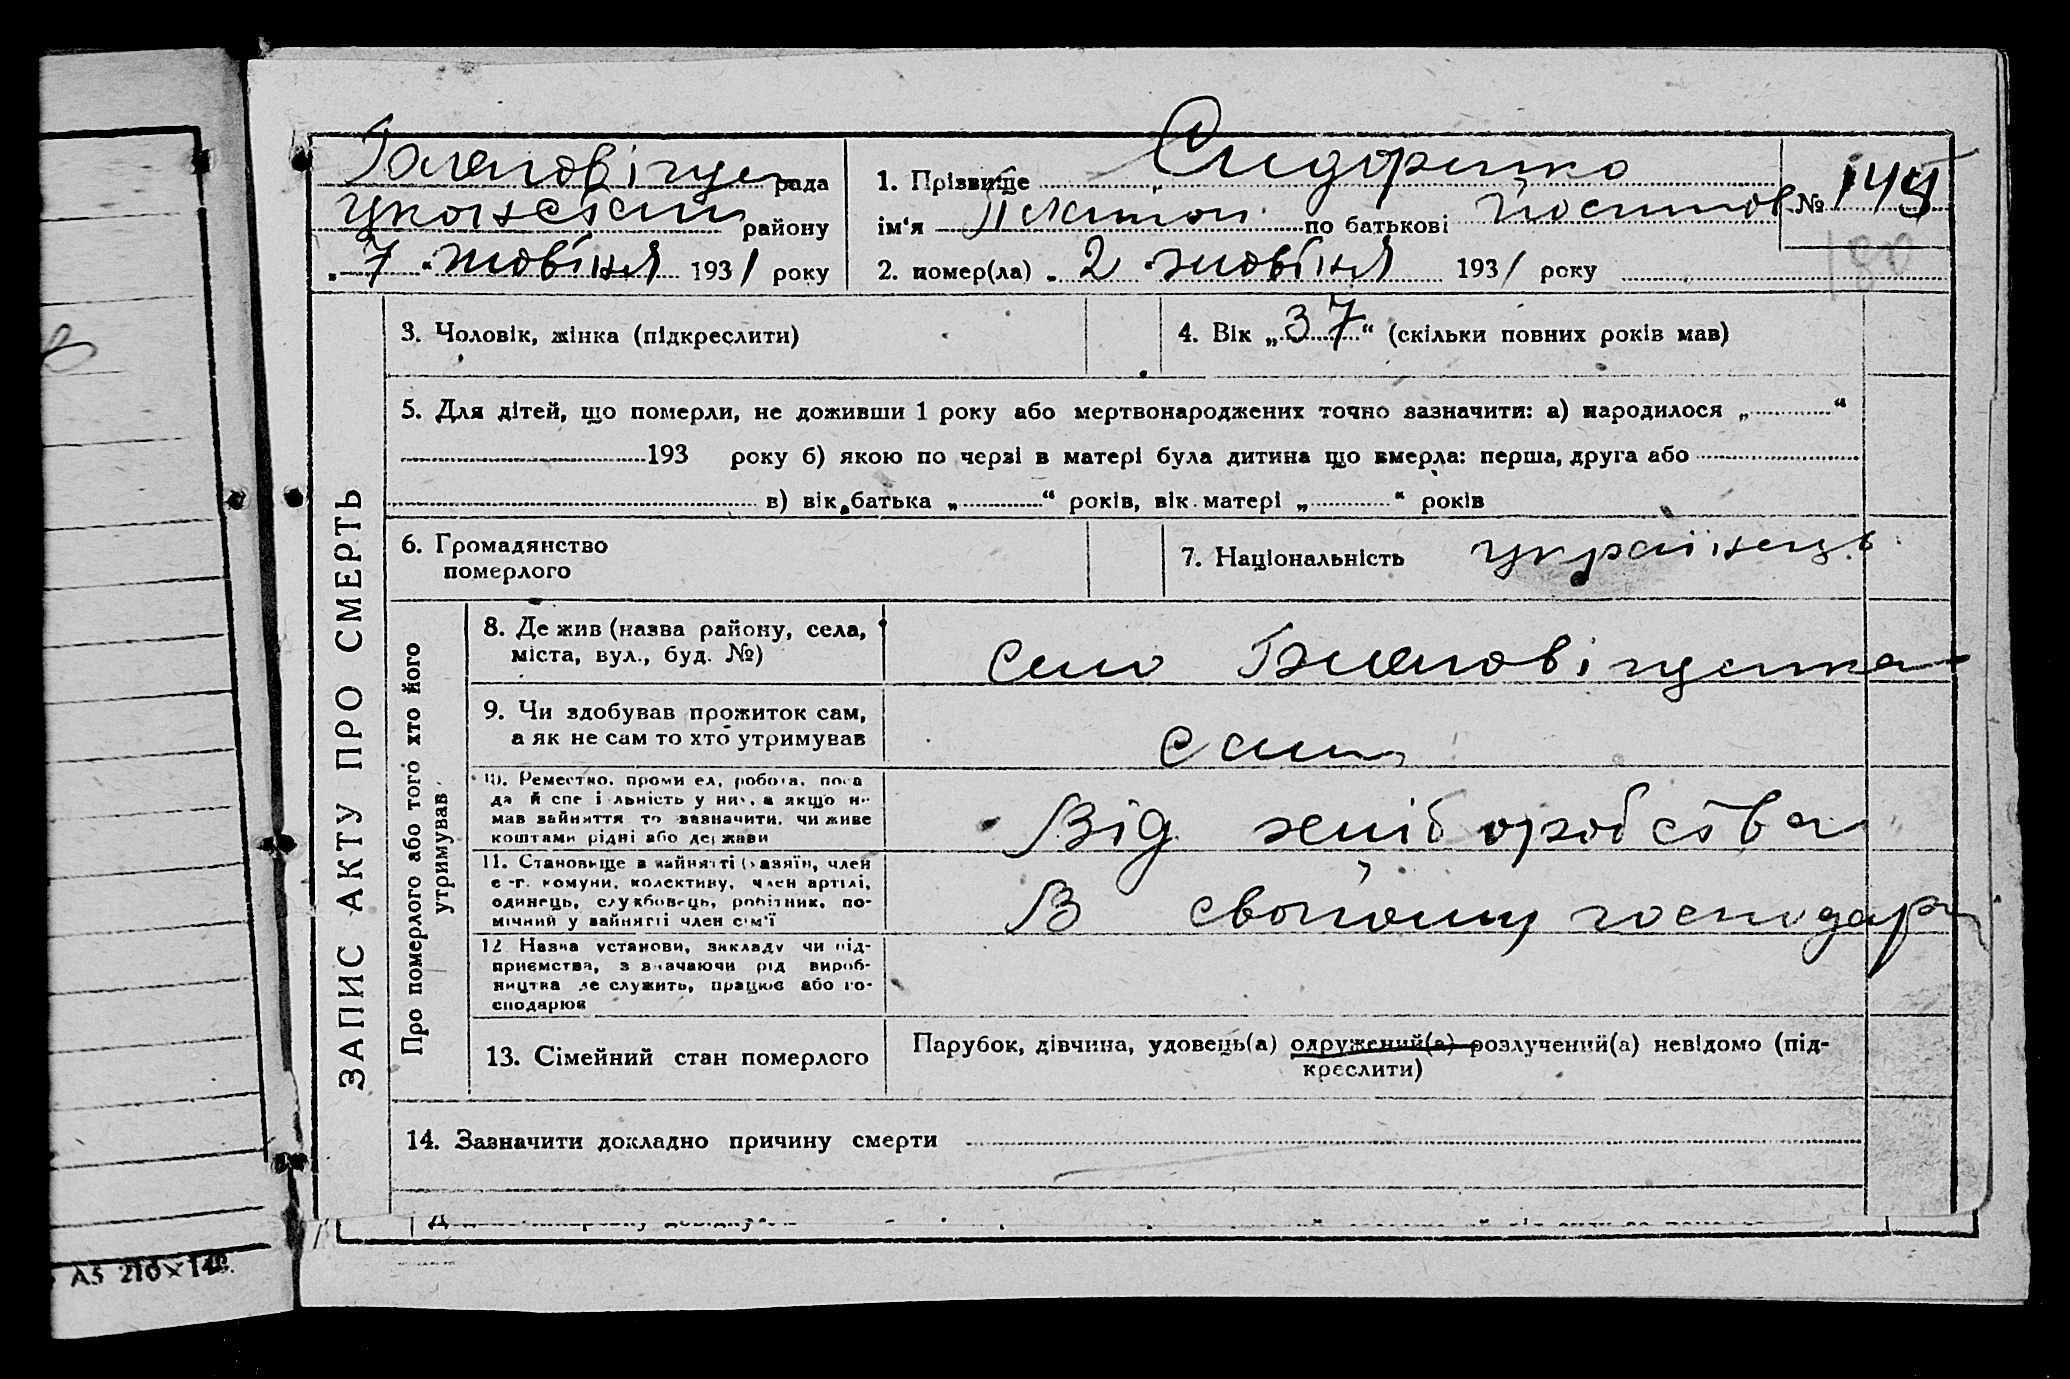 рада
району
„ 7 " жовтня 1931 року
1. Прізвище Сидоренко
ім'я Платон по батькові
№ 145
180
2. помер(ла) „ 2 " жовтня 1931 року
ЗАПИС АКТУ ПРО СМЕРТЬ
3. Чоловік, жінка (підкреслити)
4. Вік „ 37 " (скільки повних років мав)
5. Для дітей, що померли, не доживши 1 року або мертвонароджених точно зазначити: а) народилося „ "
193 року б) якою по черзі в матері була дитина що вмерла: перша, друга або
в) вік батька „ " років, вік матері „ " років
6. Громадянство
померлого
7. Національність українець
Про померлого або того хто його
утримував
8. Де жив (назва району, села,
міста, вул., буд. №)
село
9. Чи здобував прожиток сам,
а як не сам то хто утримував
сам
10. Ремество, промисел, робота, поса
да й спеціальність у них, а якщо не
мав зайняття то зазначити, чи живе
коштами рідні або держави
Від хліборобства
11. Становище в зайнятті (хазяїн, член
с.-г. комуни, колективу, член артілі,
одинець, службовець, робітник, по-
мічний у зайнятті член сім'ї
В своєму господар
12. Назва установи, закладу чи під-
приємства, зазначаючи рід вироб-
ництва де служить, працює або го-
сподарює
13. Сімейний стан померлого
Парубок, дівчина, удовець(а) одружений(а) розлучений(а) невідомо (під-
креслити)
14. Зазначити докладно причину смерти
А5 210×148.